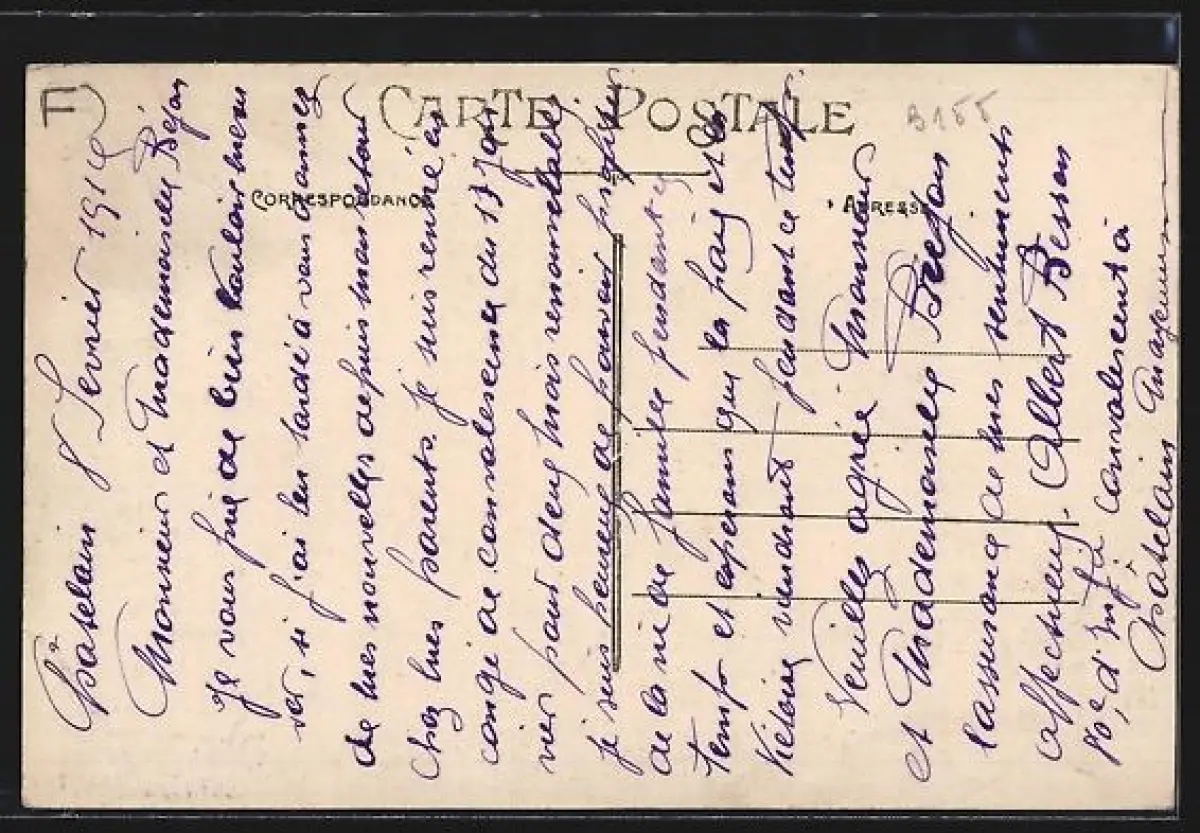 CARTE POSTALE
CORRESPONDANCE
ADRESSE
B155
F
Châtelain 8 Fevrier 191
Monsieur et Mademoiselle
Je vous prie de bien vouloir m'excu
ser, si j'ai bien tardé à vous donner
de mes nouvelles depuis mon retour
chez mes parents. Je suis rentré en
congé de convalescence du 17 Jan
vier pour deux mois renouvelable
je suis heureux de pouvoir profiter
de la vie de famille pendant ce
temps et esperons que la paix et la
Victoire viendront pendant ce temps
Veuillez agréer Monsieur
et Mademoiselle
l'assurance de mes sentiments
affectueux. Albert Besson
70e d'Inf. convalescent à
Châtelain Mayenne